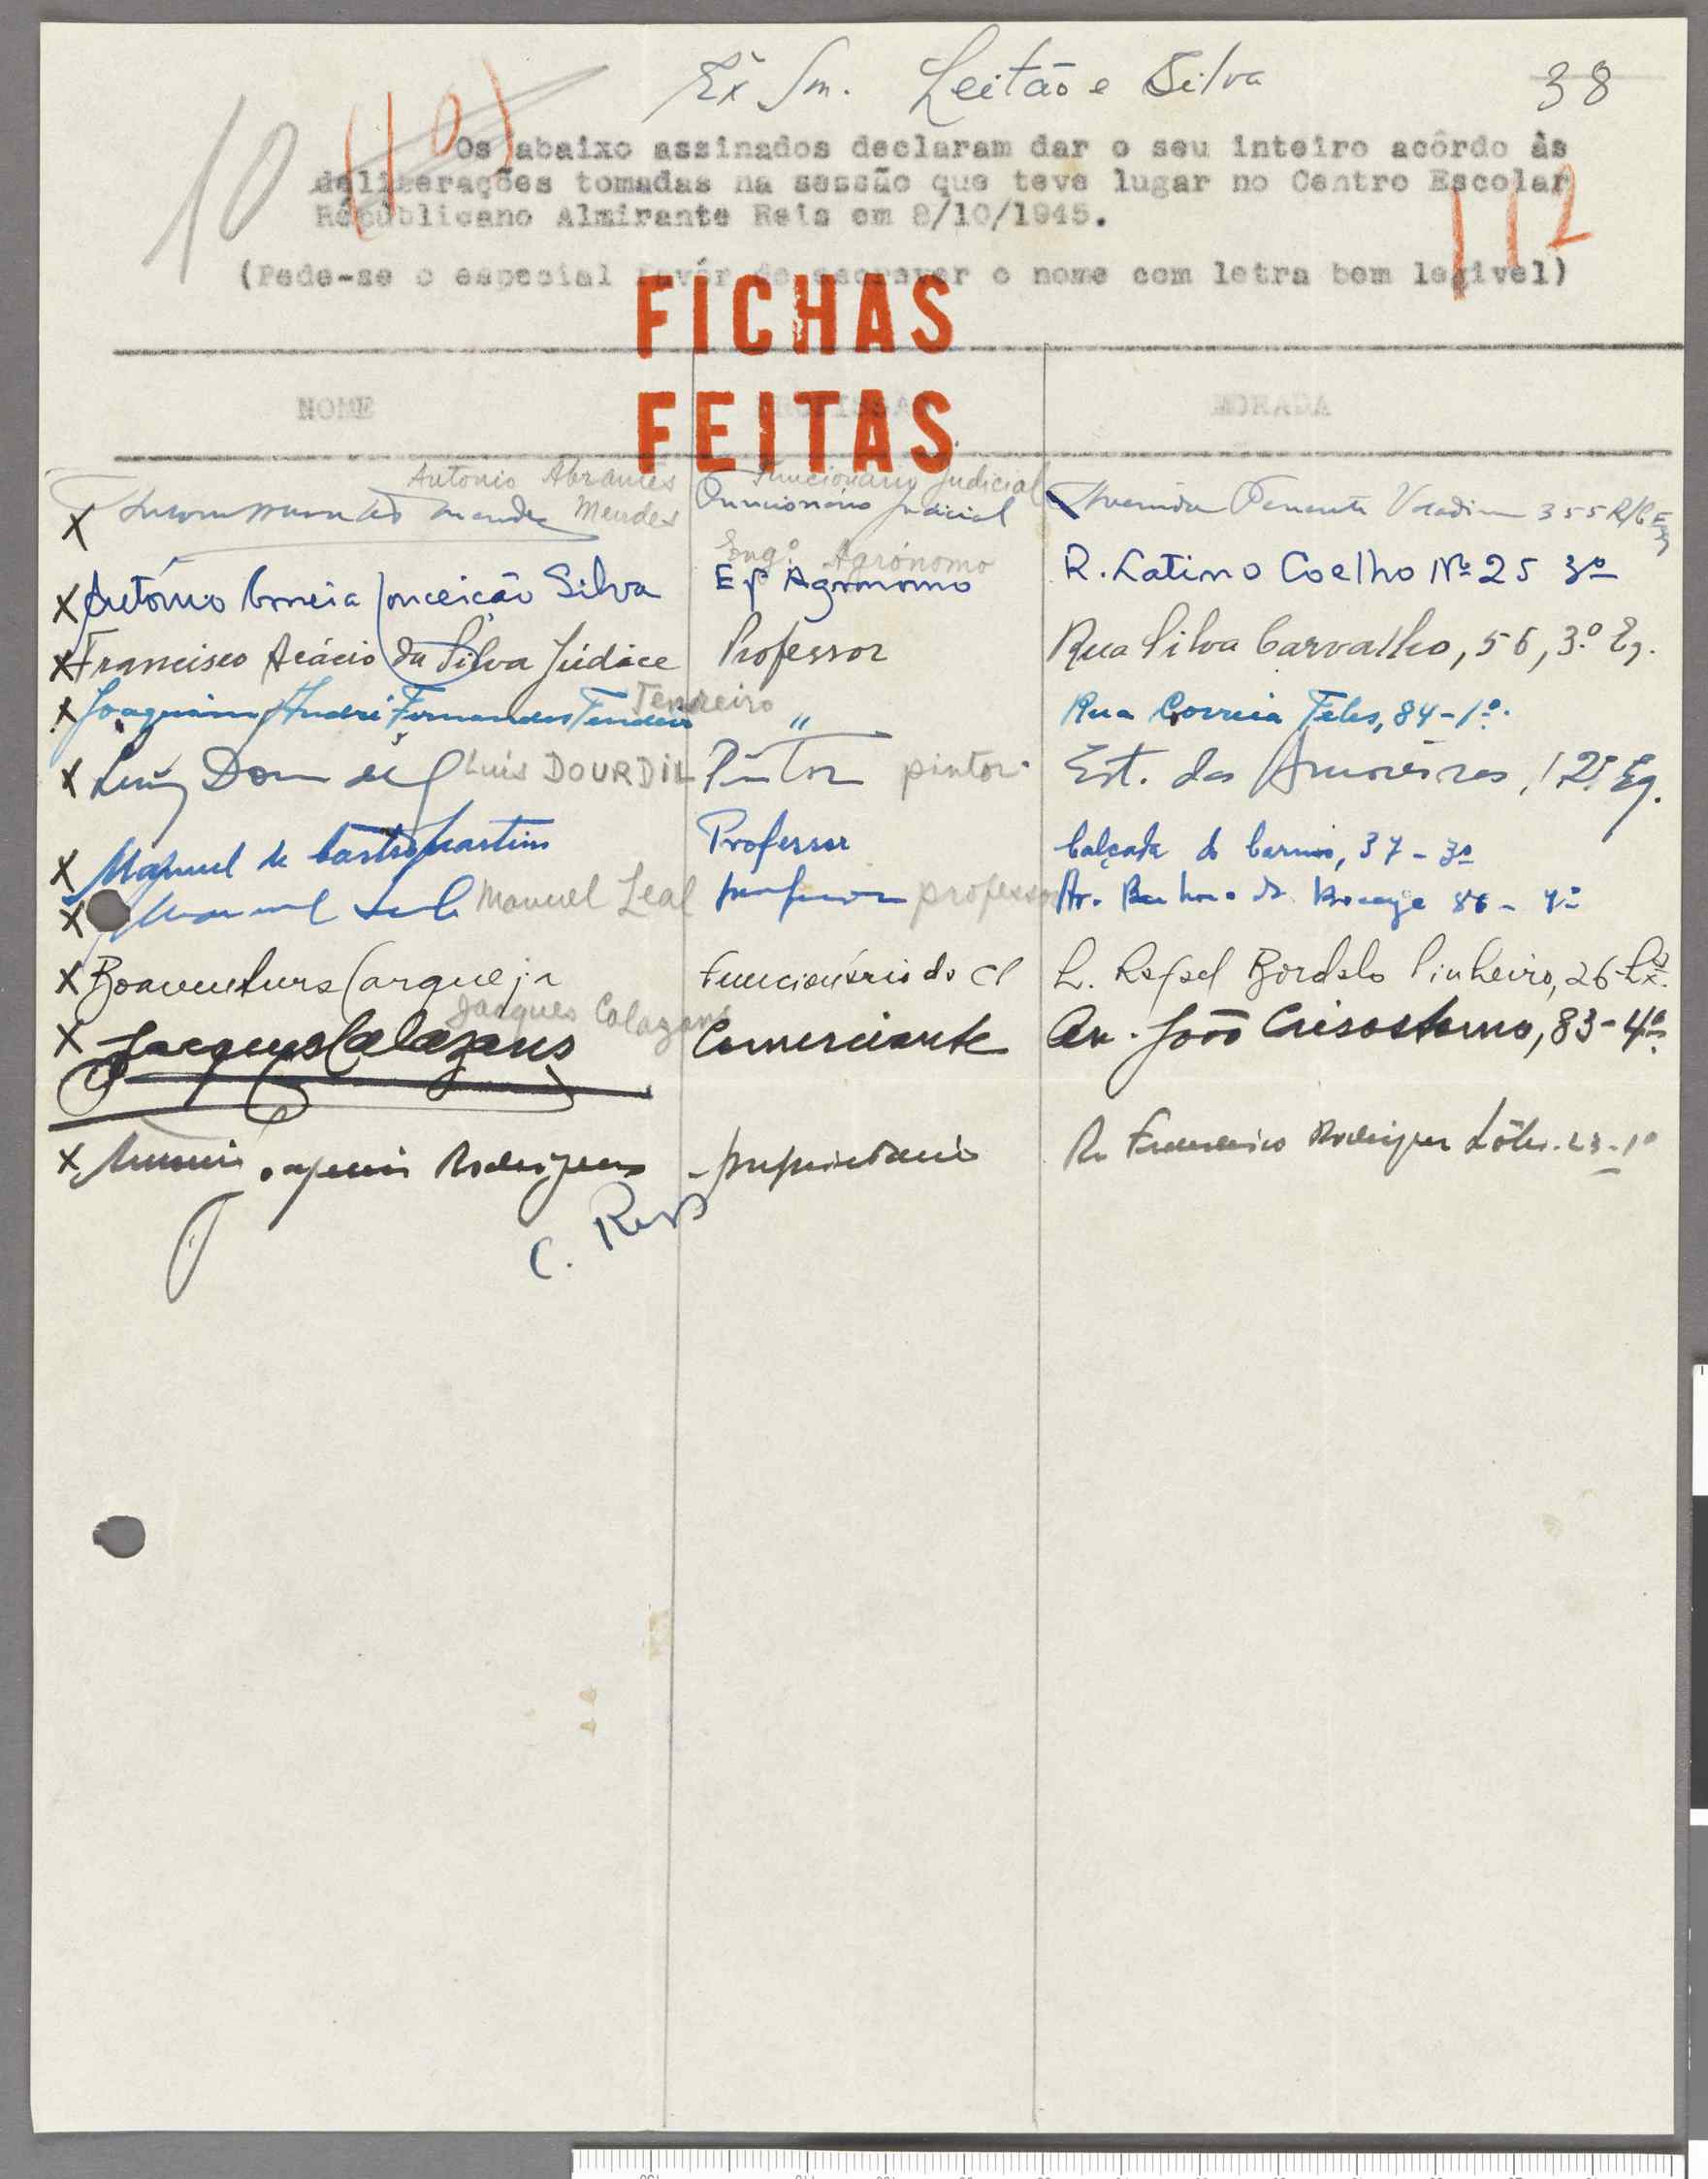 Ex Sm. Leitão e Silva
38
10 (10)
Os abaixo assinados declaram dar o seu inteiro acôrdo às
deliberações tomadas na sessão que teve lugar no Centro Escolar
Républicano Almirante Reis em 8/10/1945.
112
(Pede-se o especial favôr de escrever o nome com letra bem legivel)
FICHAS
FEITAS
NOME PROFISSÃO MORADA
Antonio Abrantes Mendes Funcionario Judicial
X Mendes Funcionário Judicial Avenida Tenente Valadim 355 R/C Esq
Engº. Agrónomo
X António Correia Conceição Silva Engº Agronomo R. Latino Coelho Nº 25 3º
X Francisco Acácio da Silva Júdice Professor Rua Silva Carvalho, 56, 3.º Eq.
Tenreiro
X Joaquim André Fernandes Tenreiro " Rua Correia Teles, 84-1º.
X Luís Dourdil Luis DOURDIL Pintor pintor Est. das Amoreiras, 12º Eq.
X Manuel de Castro Martins Professor Calçada do Carmo, 37-3º
X Manuel Leal Manuel Leal professor professor Av. Barbosa du Bocage 86-4º
X Boaventura Carqueja Funcionário do L. Rafael Bordalo Pinheiro, 26 Lxª.
Jacques Calazans
X Jacques Calazans Comerciante Av. João Crisostomo, 83-4º
X Rodrigues proprietario R. Frederico 23-1º
C. Reis